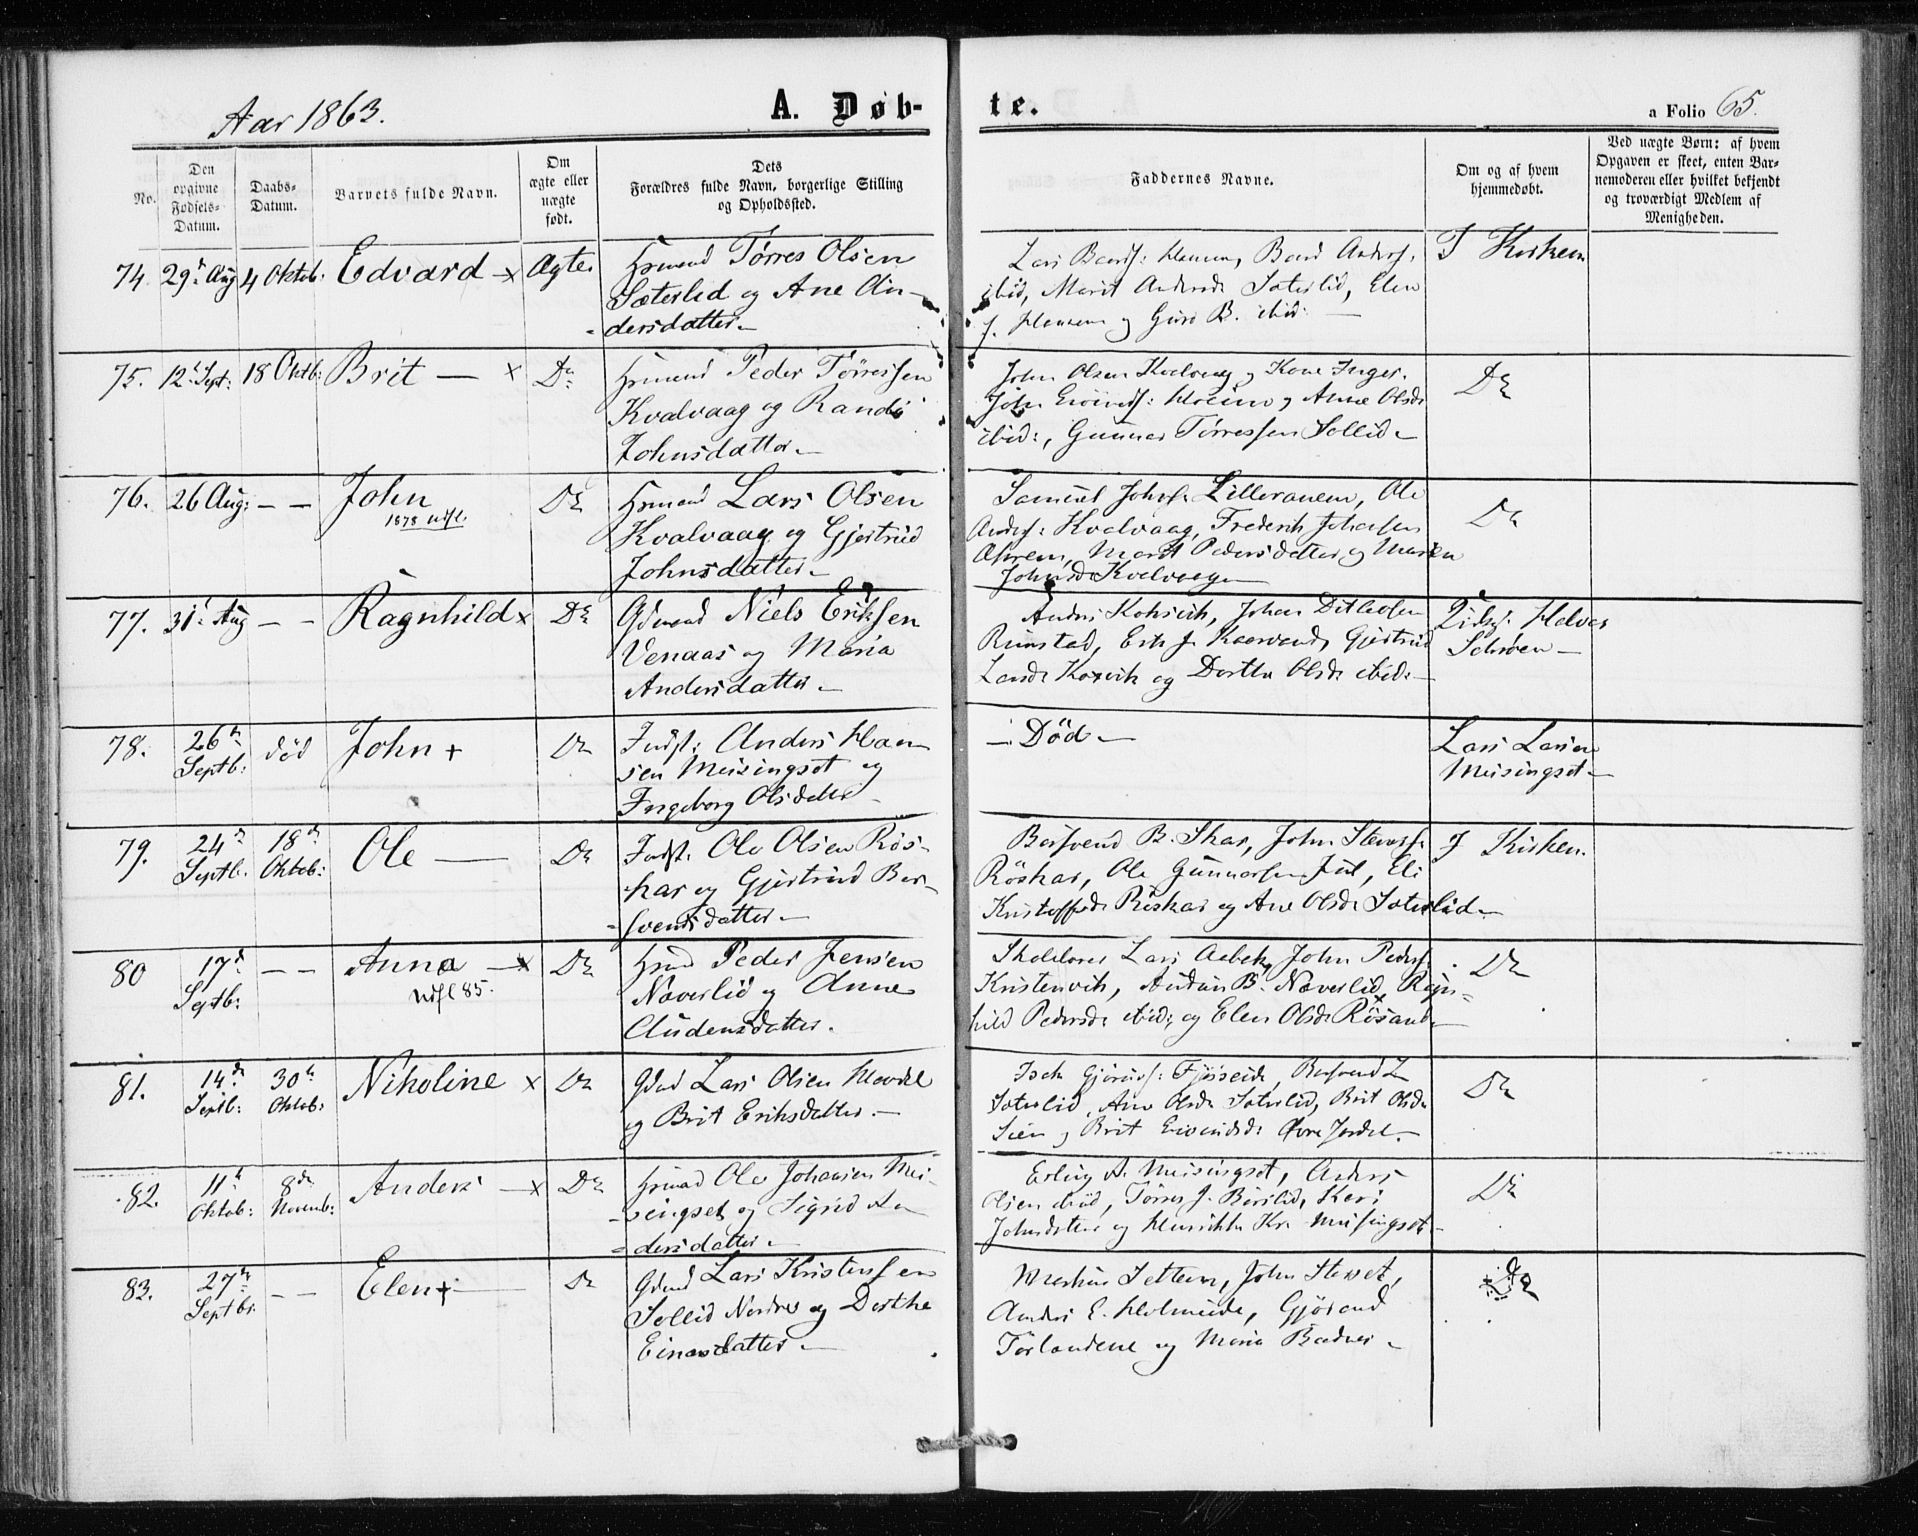 Aar 1863.
A. Døb-
te.
a Folio 65.
No.
Den
opgivne
Fødsels-
Datum.
Daabs-
Datum.
Barnets fulde Navn.
Om
ægte eller
uægte
født.
Dets
Forældres fulde Navn, borgerlige Stilling
og Opholdssted.
Faddernes Navne.
Om og af hvem
hjemmedøbt.
Ved uægte Børn: af hvem
Opgaven er skeet, enten Bar-
nemoderen eller hvilket bekjendt
og troværdigt Medlem af
Menigheden.
74. 29d Aug 4 Oktob: Edvard - x Ægte
Hsmand Tørres Olsen
Sæterlid og Ane An-
dersdatter -
Lars Bardf: Hansen, Bard Andersf.
ibid, Marit Andersd. Sæterlid, Elen
J. Hansen og Guri B. ibid: -
I Kirken
75. 12d Sept: 18 Oktb: Brit - x Do
Hsmand Peder Tørressen
Kvalvaag og Randi
Johnsdatter -
John Olsen Kvalvaag og Kone Inger.
John Eivindf: Hoeim og Anne Olsdr
ibid:, Gunnar Tørressen Sollid -
Do
76. 26 Aug: - - John Do
1878 udfl.
Hsmand Lars Olsen
Kvalvaag og Gjertrud
Johnsdatter -
Samuel Johnf. Lilleranem, Ole
Andrsf: Kvalvaag, Frederik Johansen
Marit Pedersdatter og Maren
Johnsd. Kvalvaag -
Do
77. 31d Aug - - Ragnhild x Do
Gdmand Niels Eriksen
Venaas og Maria
Andersdatter -
Anders Korsvik, Johan Ditlefsen
Rimstad, Erik J. Kaarvand, Gjertrud
Larsd. Korsvik og Dorthe Olsdr ibid: -
Halvor
Schrøen -
78. 26d Septb: død John + Do
Indst: Anders Han-
sen Meisingset og
Ingeborg Olsdatter
- Død -
Lars Larsen
Meisingset -
79. 24d Septb. 18d Oktob: Ole - Do
Indst: Ole Olsen Røs-
kar og Gjertrud Ber-
svendsdatter -
Bersvend B. Skar, John Stensf.
Røskar, Ole Gunnarsen Jul, Eli
Kristoffsdr Røskar og Ane Olsdr Sæterlid -
I Kirken.
80 17d Septb: - - Anna - x Do
udfl 85.
Hsmd Peder Jensen
Næverlid og Anne
Audensdatter.
Skolelærer Lars Aabek, John Pedersf.
Kristenvik, Audun B. Næverlid, Ragn-
hild Pedersdr ibid; og Elen Olsdr Røsand -
Do
81. 14d Septb: 30d Oktob: Nikoline x Do
Gdmd Lars Olsen Mordal
og Brit Eriksdatter -
Isak Gjørundf: Fjøseide, Bersvend L
Sæterlid, Ane Olsdr Sæterlid, Brit Olsdr
Sien og Brit Eivindsdr Øvre Jordal. -
Do
82. 11d Oktob: 8de Novemb: Anders - x Do
Hsmand Ole Johansen Mei-
singset og Sigrid An-
dersdatter -
Erling A. Meisingset, Anders
Olsen ibid, Tørres J. Børslid, Kari
Johnsdatter og Henrikke Kr. Meisingset -
Do
83. 27de Septbr. - - Elen + - Do
Gdmd Lars Kristensen
Sollid Nordre og Dorthe
Einarsdatter -
Markus Settem, John Stenset,
Anders E. Holmeide, Gjørand
Torlandene og Maria Bædver -
Do